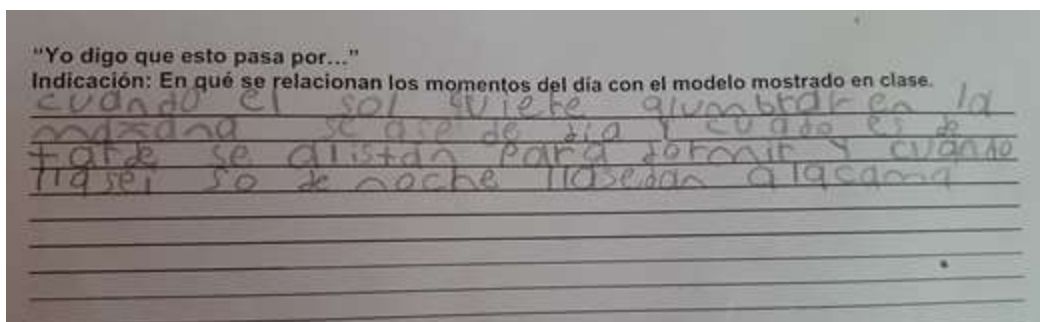 "Yo digo que esto pasa por..."
Indicación: En qué se relacionan los momentos del día con el modelo mostrado en clase.
cuando el sol quiere alumbrar en la
mañana se ase de dia y cuado es de
tarde se alistan para dormir y cuando
lla sei so de noche llasedan alacama